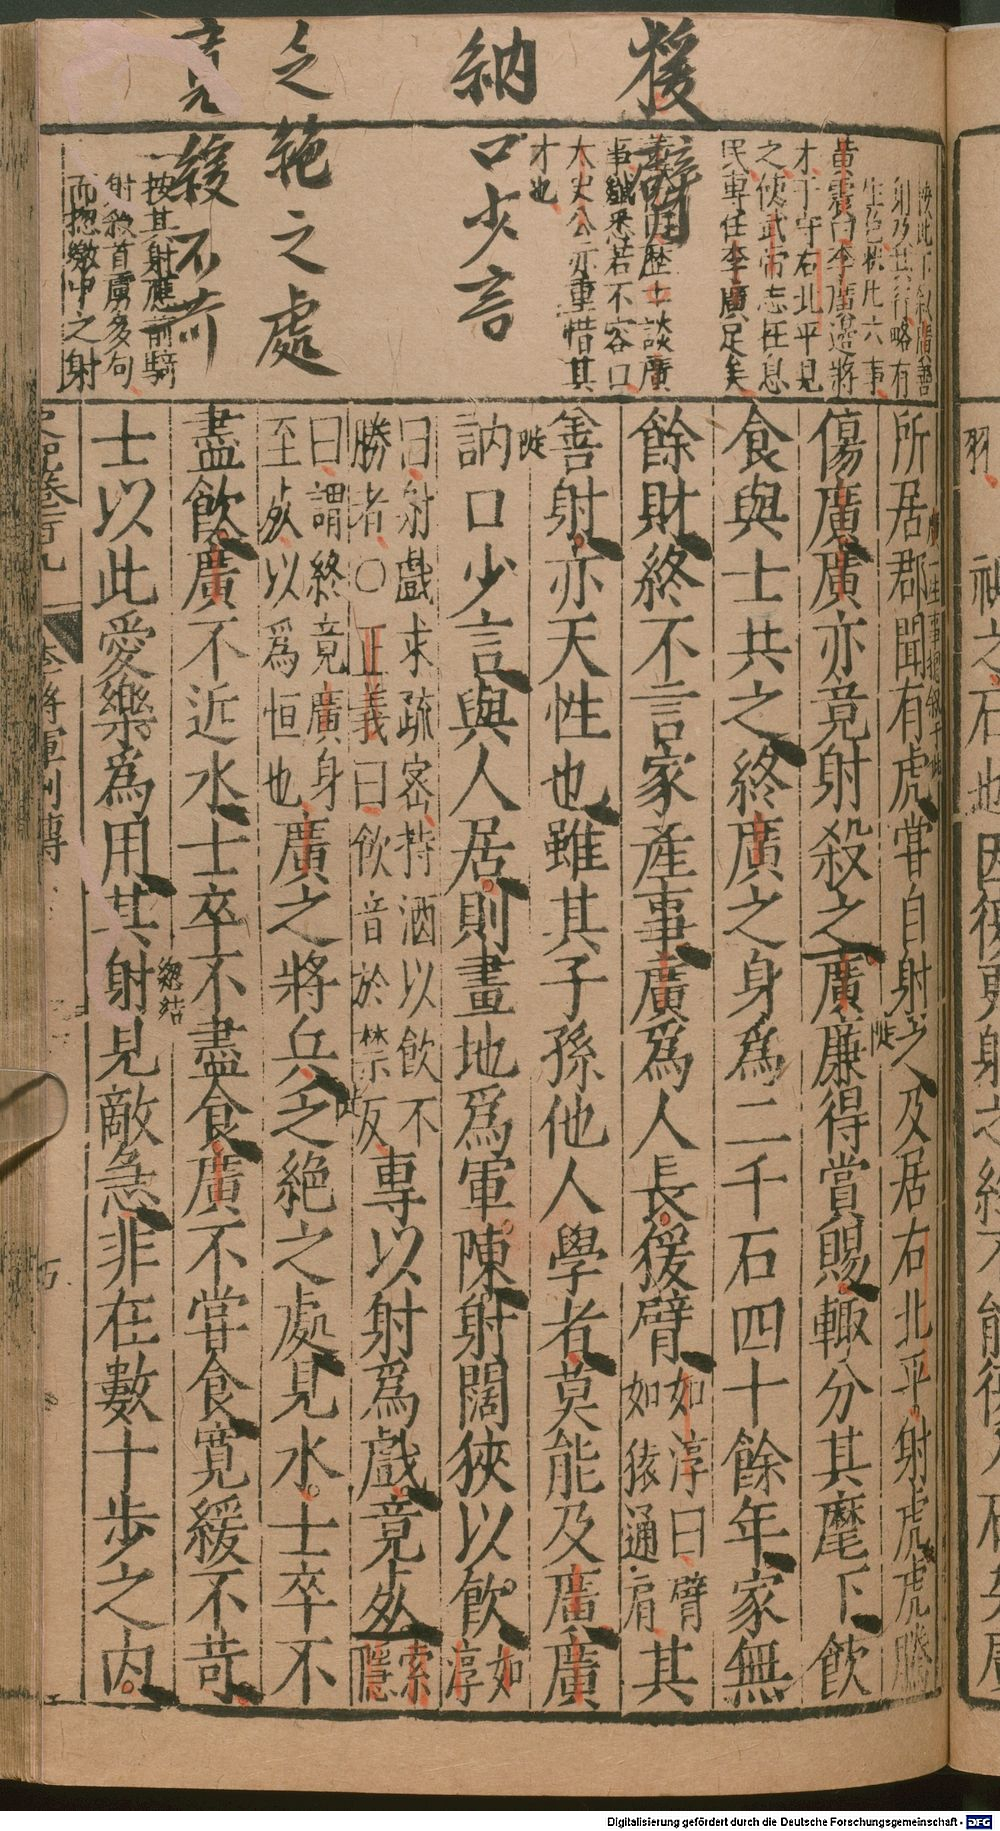 猨臂
納口少言
之絶之處
寛緩不苛
此下叙廣善
射乃其行略有
生色然此六事
黃震曰李廣邊將
才于守右北平見
之使武帝志在息
民專任李廣足矣
曰歷士談廣
事纖悉若不容口
太史公亦重惜其
才也
按其射應前騎
射殺首虜多句
而摠繳中之射
所居郡聞有虎甞自射之及居右北平射虎虎騰
傷廣廣亦竟射殺之廣廉得賞賜輙分其麾下飲
食與士共之終廣之身爲二千石四十餘年家無
餘財終不言家產事廣爲人長猨臂如淳曰臂如猿通肩其
善射亦天性也雖其子孫他人學者莫能及廣廣
訥口少言與人居則畫地爲軍陳射闊狹以飲如淳
曰射戲求疏密持酒以飲不勝者〇正義曰飲音於禁反專以射爲戲竟死索隱
曰謂終竟廣身至死以爲恒也廣之將兵之絶之處見水士卒不
盡飲廣不近水士卒不盡食廣不甞食寛緩不苛
士以此愛樂爲用其射見敵急非在數十步之内
史記卷一百九 李將軍列傳
羽
之石也因復更射之終不能復入石矣廣
Digitalisierung gefördert durch die Deutsche Forschungsgemeinschaft - DFG